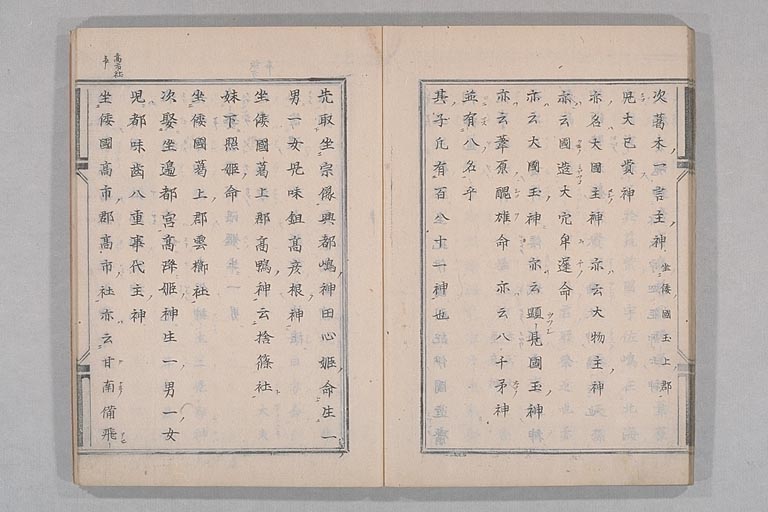 次葛木一言主神坐倭國玉上郡
児大已貴神
亦名大國主神亦云大物主神
亦云國造大穴牟遅命
亦云大國玉神亦云顕見國玉神
亦云葦原醜雄命亦云八千矛神
並有八名乎
其子凢有百八十一神也
先取坐宗像奥都嶋神田心姫命生一
男一女児味鉏高彦根神
坐倭國葛上郡高鴨神云捨篠社
妹下照姫命
坐倭國葛上郡雲櫛社
次娶坐邊都宮高降姫神生一男一女
児都味歯八重事代主神
坐倭國高市郡高市社亦云甘南備飛